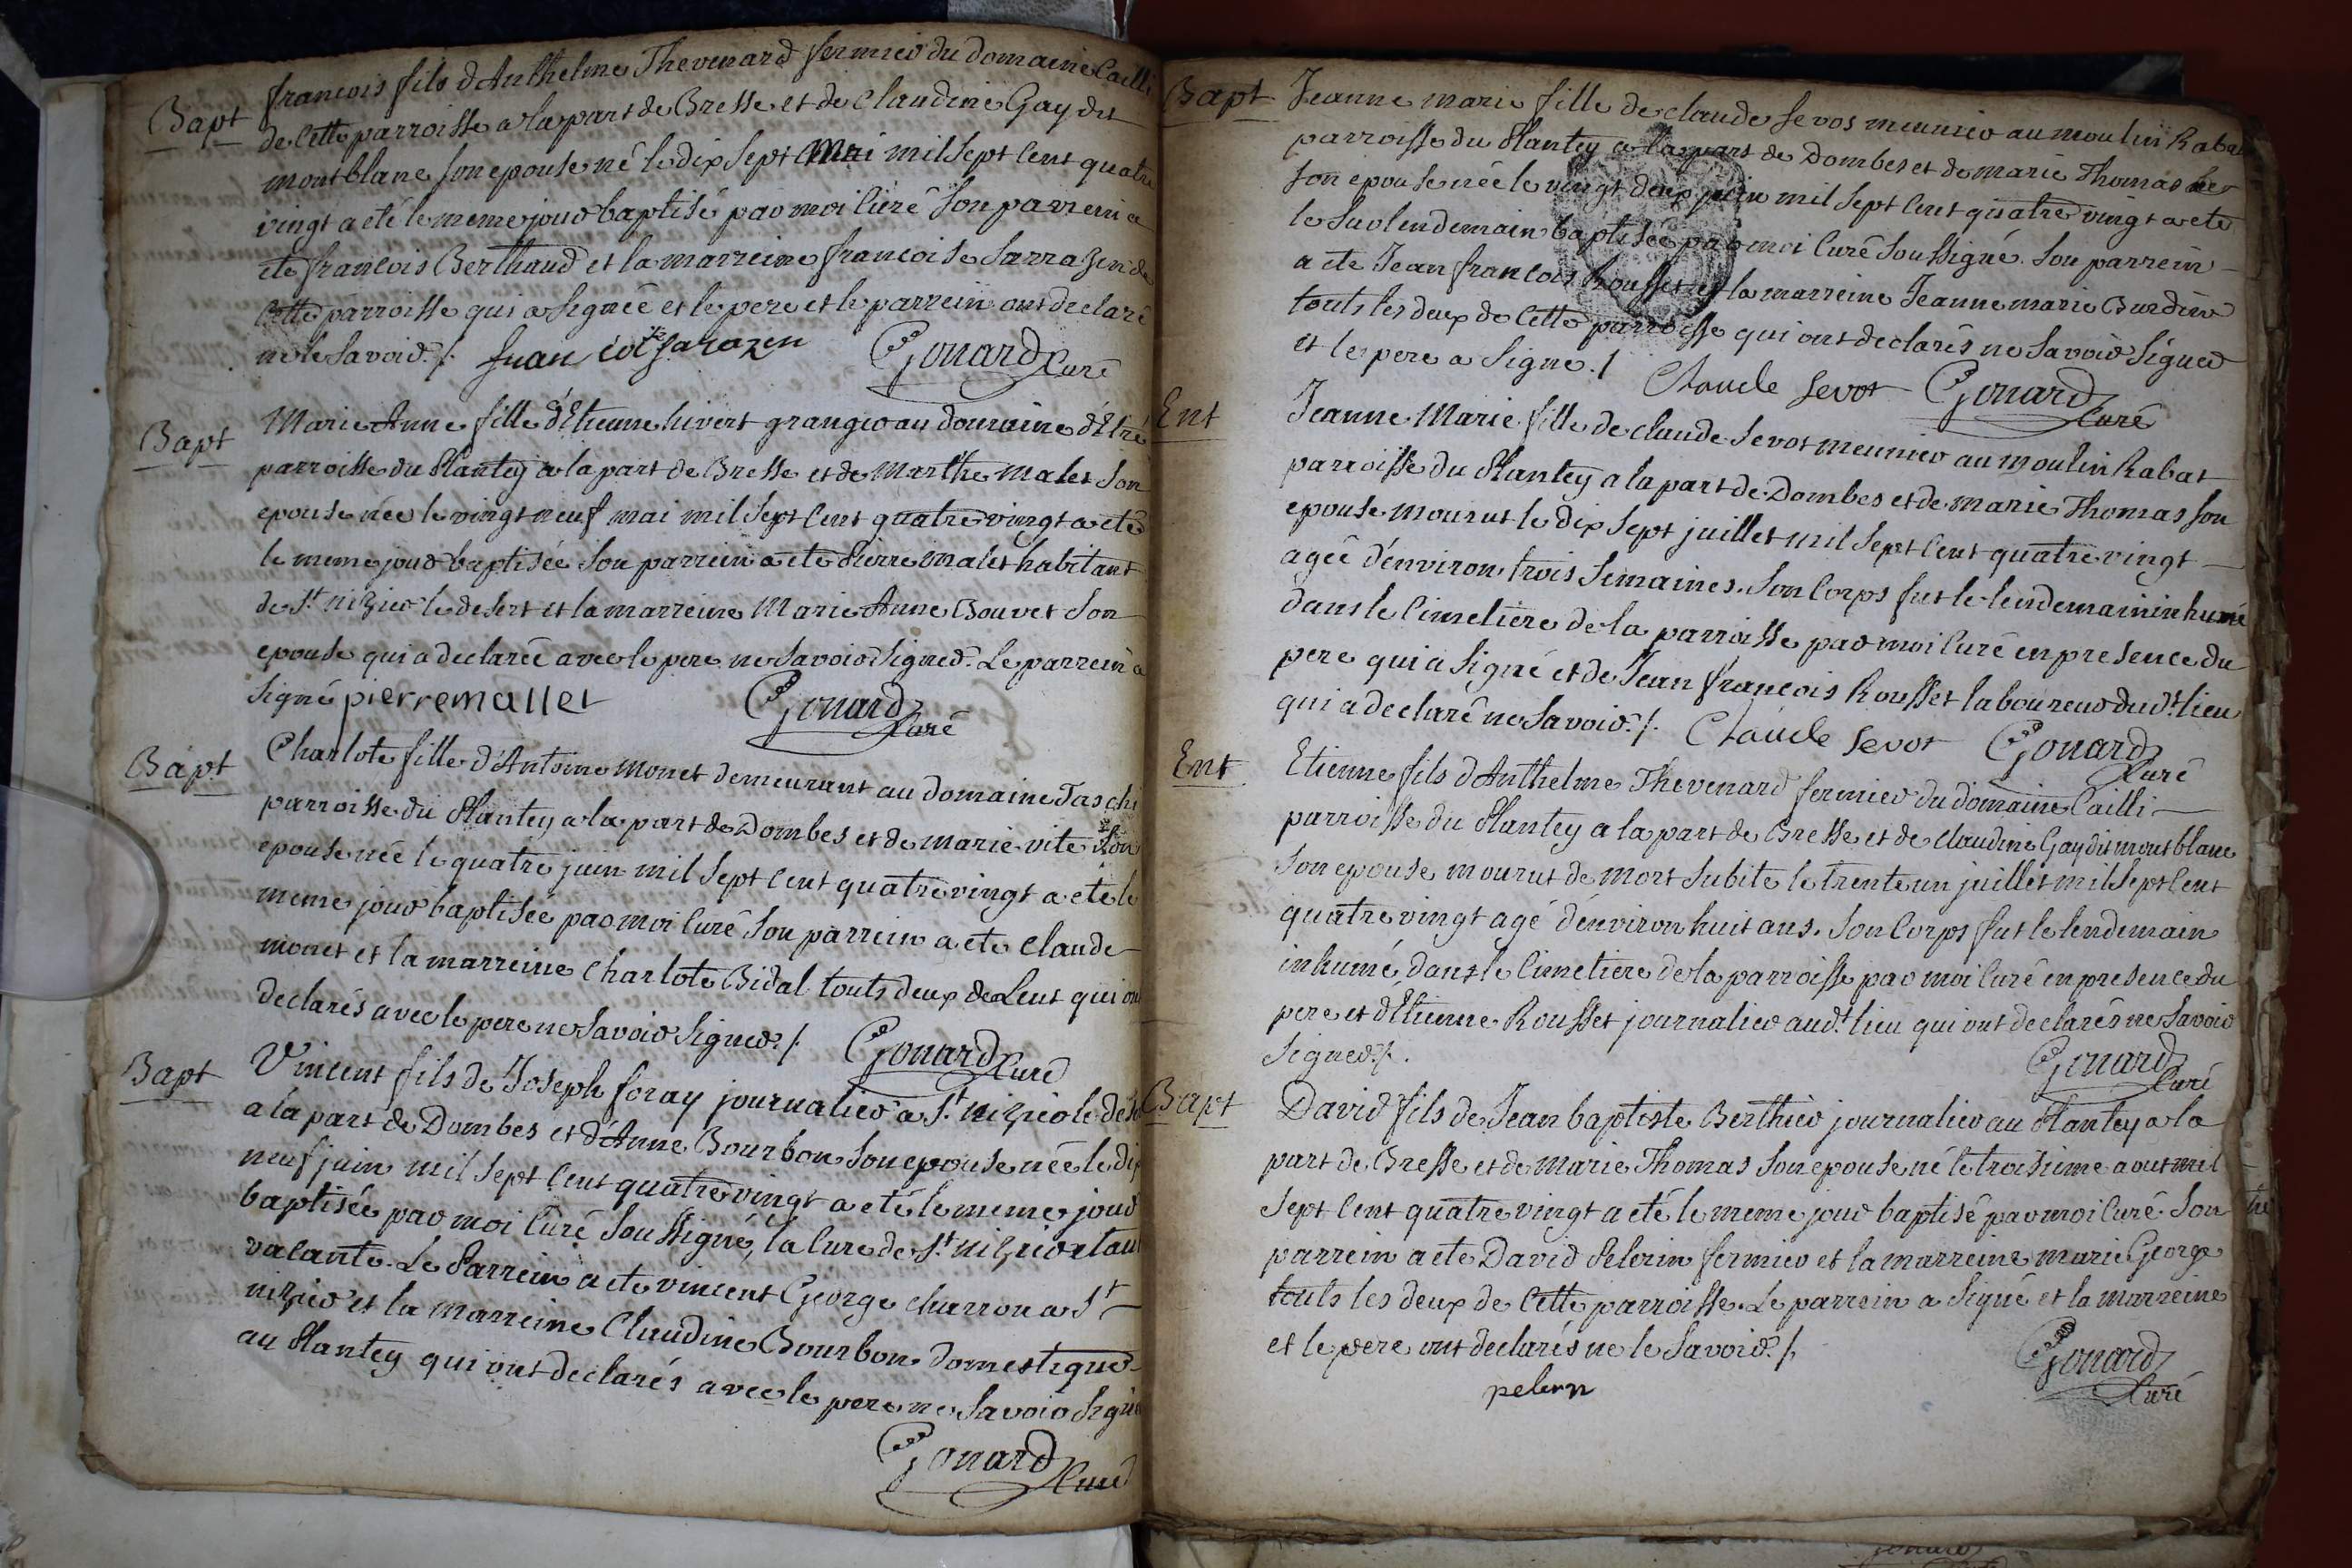 Bapt
francois fils d'Anthelme Thevenard fermier du domaine Cailli
de cette parroisse a la part de Bresse et de Claudine Gay dit
montblanc son epouse né le dix sept mai mil sept cent quatre
vingt a eté le meme jour baptisé par moi curé son parrein a
ete francois Berthaud et la marreine francoise Sarrazin de
cette parroisse qui a signée et le pere et le parrein ont declaré
ne le savoir ./. sarazen Gonard Curé
Bapt
Marie Anne fille d'Etienne hivert granger au domaine d'Etré
parroisse du Plantey a la part de Bresse et de Marthe Malet son
epouse née le vingt neuf mai mil sept cent quatre vingt a eté
le meme jour baptisée son parrein a ete Pierre malet habitant
de St nizier le desert et la marreine Marie Anne Bouvet son
epouse qui a declarée avec le pere ne savoir signer. Le parrein a
signé pierremallet Gonard Curé
Bapt
Charlote fille d'Antoine Monet demeurant au domaine Taschi
parroisse du Plantey a la part de Dombes et de marie vite son
epouse née le quatre juin mil sept cent quatre vingt a ete le
meme jour baptisée par moi curé son parrein a ete claude
monet et la marreine charlote Bidal touts deux de Lent qui ont
declarés avec le pere ne savoir signer ./. Gonard Curé
Bapt
Vincent fils de Joseph foray journalier a St nizier le dese
a la part de Dombes et d'Anne Bourbon son epouse née le dix
neuf juin mil sept cent quatre vingt a eté le meme jour
baptisée par moi curé soussigné, la cure de St nizier etant
vacante. Le Parrein a ete vincent George charron a St
nizier et la marreine Claudine Bourbon domestique
au Plantey qui ont declarés avec le pere ne savoir signe
Gonard Curé
Bapt
Jeanne marie fille de claude sevos meunier au moulin Rabat
parroisse du Plantey a la part de Dombes et de marie Thomas
son epouse née le vingt deux juin mil sept cent quatre vingt a ete
le surlendemain baptisée par moi Curé soussigné. Son parrein
a ete Jean francois Rousset et la marreine Jeanne marie Burdin
touts les deux de cette parroisse qui ont declarés ne savoir signer
et le pere a signe ./ Claude sevot Gonard Curé
Ent
Jeanne Marie fille de claude sevot meunier au moulin Rabat
parroisse du Plantey a la part de Dombes et de marie Thomas son
epouse mourut le dix sept juillet mil sept cent quatre vingt
agée d'environ trois semaines. Son Corps fut le lendemain inhumé
dans le Cimetiere de la parroisse par moi Curé en presence du
pere qui a signé et de Jean francois Rousset laboureur dud.t lieu
qui a declaré ne savoir ./. Claude sevot Gonard Curé
Ent
Etienne fils d'Anthelme Thevenard fermier du domaine Cailli
parroisse du Plantey a la part de Bresse et de Claudine Gay dit montblanc
son epouse mourut de mort subite le trente un juillet mil sept cent
quatre vingt agé d'environ huit ans. Son Corps fut le lendemain
inhumé dans le Cimetiere de la parroisse par moi Curé en presence du
pere et d'Etienne Rousset journalier aud.t lieu qui ont declarés ne savoir
signer ./. Gonard Curé
Bapt
David fils de Jean baptiste Berthier journalier au Plantey a la
part de Bresse et de marie Thomas son epouse né le troisieme aout mil
sept cent quatre vingt a eté le meme jour baptisé par moi curé. Son
parrein a ete David Pelerin fermier et la marreine marie George
touts les deux de cette parroisse. Le parrein a signé et la marreine
et le pere ont declarés ne le savoir ./.
pelern Gonard Curé